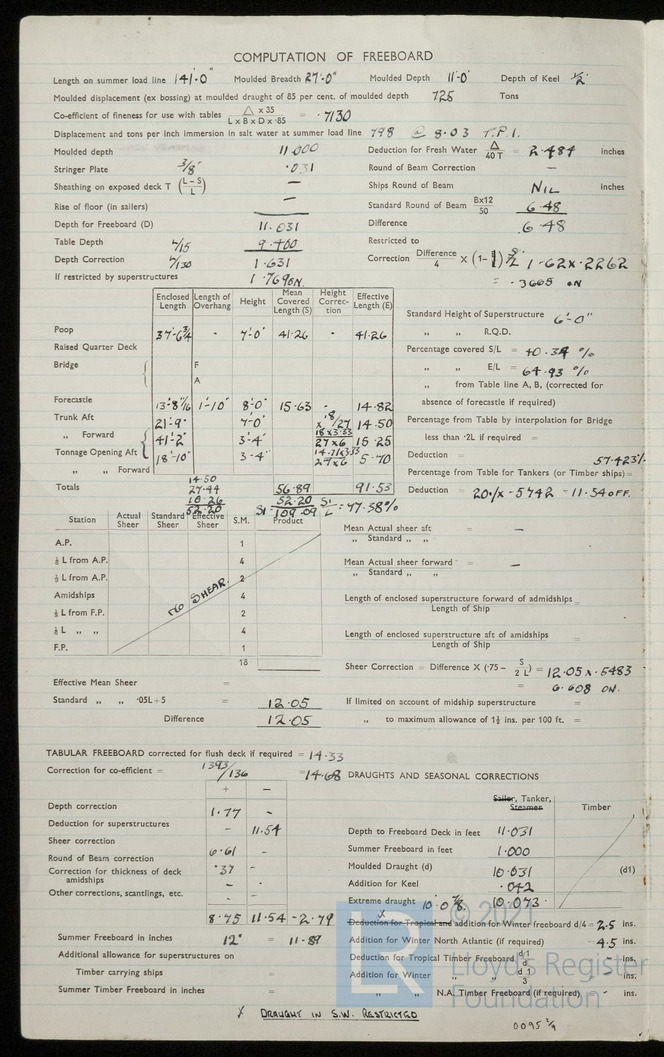 COMPUTATION OF FREEBOARD
Length on summer load line 141'-0" Moulded Breadth 27'-0" Moulded Depth 11'-0" Depth of Keel ½"
Moulded displacement (ex bossing) at moulded draught of 85 per cent. of moulded depth 725 Tons
Co-efficient of fineness for use with tables △ x 35 / L x B x D x ·85 = ·7130
Displacement and tons per inch immersion in salt water at summer load line 798 @ 8·03 T.P.I.
Moulded depth 11·000 Deduction for Fresh Water △ / 40 T = 2·484 inches
Stringer Plate 3/8" ·031 Round of Beam Correction —
Sheathing on exposed deck T (L – S / L) — Ships Round of Beam NIL inches
Rise of floor (in sailers) — Standard Round of Beam Bx12 / 50 6·48
Depth for Freeboard (D) 11·031 Difference 6·48
Table Depth L/15 9·400 Restricted to
Depth Correction L/130 1·631 Correction Difference / 4 X (1- S/L) 1·62 x ·2262
If restricted by superstructures 1·769 ON = ·3665 ON
Enclosed Length Length of Overhang Height Mean Covered Length (S) Height Correction Effective Length (E)
Standard Height of Superstructure 6'-0"
Poop 37'-6¾ - 7'-0" 41·26 - 41·26 „ „ R.Q.D.
Raised Quarter Deck Percentage covered S/L = 40·34 %
Bridge F „ „ E/L = 64·93 %
A „ from Table line A, B, (corrected for
Forecastle 13'-8 7/16 1'-10" 8'-0" 15·63 - 14·82 absence of forecastle if required)
Trunk Aft 21'-9" 7'-0" x 18/27 14·50 Percentage from Table by interpolation for Bridge
„ Forward 41'-2" 3'-4" 18x3·33 / 27x6 15·25 less than ·2L if required =
Tonnage Opening Aft 18'-10" 3'-4" 14·71x3·33 / 27x6 5·70 Deduction = 57·423%
„ „ Forward Percentage from Table for Tankers (or Timber ships) =
Totals 14·50 27·44 10·26 52·20 56·89 91·53 Deduction = 20·1 x ·5742 = 11·54 OFF.
52·20
S1 = 109·09 S1/L = 77·38%
Station Actual Sheer Standard Sheer Effective Sheer S.M. Product
Mean Actual sheer aft = —
„ Standard „ „
A.P. 1
⅙ L from A.P. 4 Mean Actual sheer forward = —
⅓ L from A.P. 2 „ Standard „ „
Amidships 4 Length of enclosed superstructure forward of admidships =
⅓ L from F.P. 2 Length of Ship
⅙ L „ „ 4 Length of enclosed superstructure aft of amidships =
F.P. 1 Length of Ship
NO SHEAR.
18 Sheer Correction = Difference X (·75 – S / 2 L) = 12·05 x ·5483
Effective Mean Sheer = = 6·608 ON.
Standard „ „ ·05L+5 = 12·05 If limited on account of midship superstructure =
Difference 12·05 „ to maximum allowance of 1½ ins. per 100 ft. =
TABULAR FREEBOARD corrected for flush deck if required = 14·33
Correction for co-efficient = 1393/136 = 14·68 DRAUGHTS AND SEASONAL CORRECTIONS
+ – Sailer, Tanker, Steamer Timber
Depth correction 1·77 -
Deduction for superstructures - 11·54 Depth to Freeboard Deck in feet 11·031
Sheer correction 6·61 - Summer Freeboard in feet 1·000
Round of Beam correction ·37 - Moulded Draught (d) 10·031 (d1)
Correction for thickness of deck amidships - - Addition for Keel ·042
Other corrections, scantlings, etc. - Extreme draught 10'0⅞" 10·073
8·75 11·54 -2·79 X Deduction for Tropical and addition for Winter freeboard d/4 = 2·5 ins.
Summer Freeboard in inches 12" = 11·89 Addition for Winter North Atlantic (if required) - 4·5 ins.
Additional allowance for superstructures on Deduction for Tropical Timber Freeboard d1 / 4 = - ins.
Timber carrying ships = Addition for Winter „ „ d1 / 3 = - ins.
Summer Timber Freeboard in inches = „ „ N.A. Timber Freeboard (if required) - ins.
X DRAUGHT IN S.W. RESTRICTED
LR © 2021
Lloyd's Register
Foundation